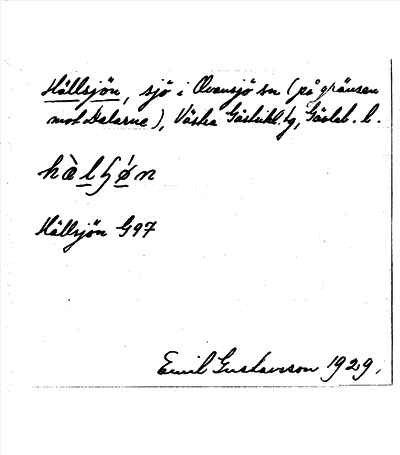 Hällsjön, sjö i Ovansjö sn (på gränsen
mot Dalarne), Västra Gästrikl. tg, Gävleb. l.
hàlʃǿn
Hällsjön G97
Emil Gustavsson 1929.